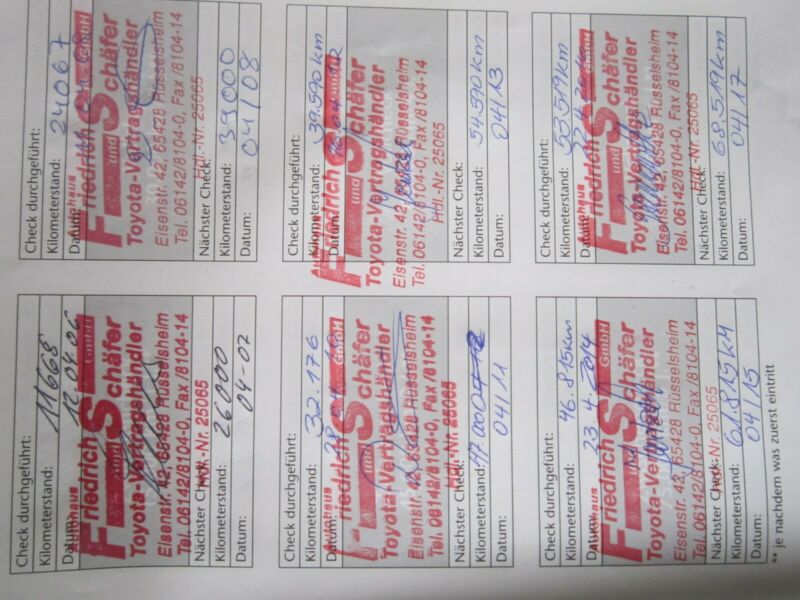 Check durchgeführt:
Kilometerstand: 11668
Datum: 12.04.06
Friedrich
und Schäfer GmbH
Toyota-Vertragshändler
Eisenstr. 42, 65428 Rüsselsheim
Tel. 06142/8104-0, Fax /8104-14
Hdl.-Nr. 25065
Nächster Check:
Kilometerstand: 26000
Datum: 04-07
Check durchgeführt:
Kilometerstand: 24067
Datum:
Friedrich
und Schäfer GmbH
Toyota-Vertragshändler
Eisenstr. 42, 65428 Rüsselsheim
Tel. 06142/8104-0, Fax /8104-14
Hdl.-Nr. 25065
Nächster Check:
Kilometerstand: 39000
Datum: 04/08
Check durchgeführt:
Kilometerstand: 32.176
Datum:
Autohaus
Friedrich
und Schäfer GmbH
Toyota-Vertragshändler
Eisenstr. 42, 65428 Rüsselsheim
Tel. 06142/8104-0, Fax /8104-14
Hdl.-Nr. 25065
Nächster Check:
Kilometerstand: 47.000
Datum: 04/11
Check durchgeführt:
Kilometerstand: 39.590 km
Datum:
Autohaus
Friedrich
und Schäfer GmbH
Toyota-Vertragshändler
Eisenstr. 42, 65428 Rüsselsheim
Tel. 06142/8104-0, Fax /8104-14
Hdl.-Nr. 25065
Nächster Check:
Kilometerstand: 54.590 km
Datum: 04/13
Check durchgeführt:
Kilometerstand: 46.815km
Datum: 23.4.2014
Autohaus
Friedrich
und Schäfer GmbH
Toyota-Vertragshändler
Eisenstr. 42, 65428 Rüsselsheim
Tel. 06142/8104-0, Fax /8104-14
Hdl.-Nr. 25065
Nächster Check:
Kilometerstand: 61.815 km
Datum: 04/15
Check durchgeführt:
Kilometerstand: 53.519km
Datum:
Autohaus
Friedrich
und Schäfer GmbH
Toyota-Vertragshändler
Eisenstr. 42, 65428 Rüsselsheim
Tel. 06142/8104-0, Fax /8104-14
Hdl.-Nr. 25065
Nächster Check:
Kilometerstand: 68.519km
Datum: 04/17
** je nachdem was zuerst eintritt